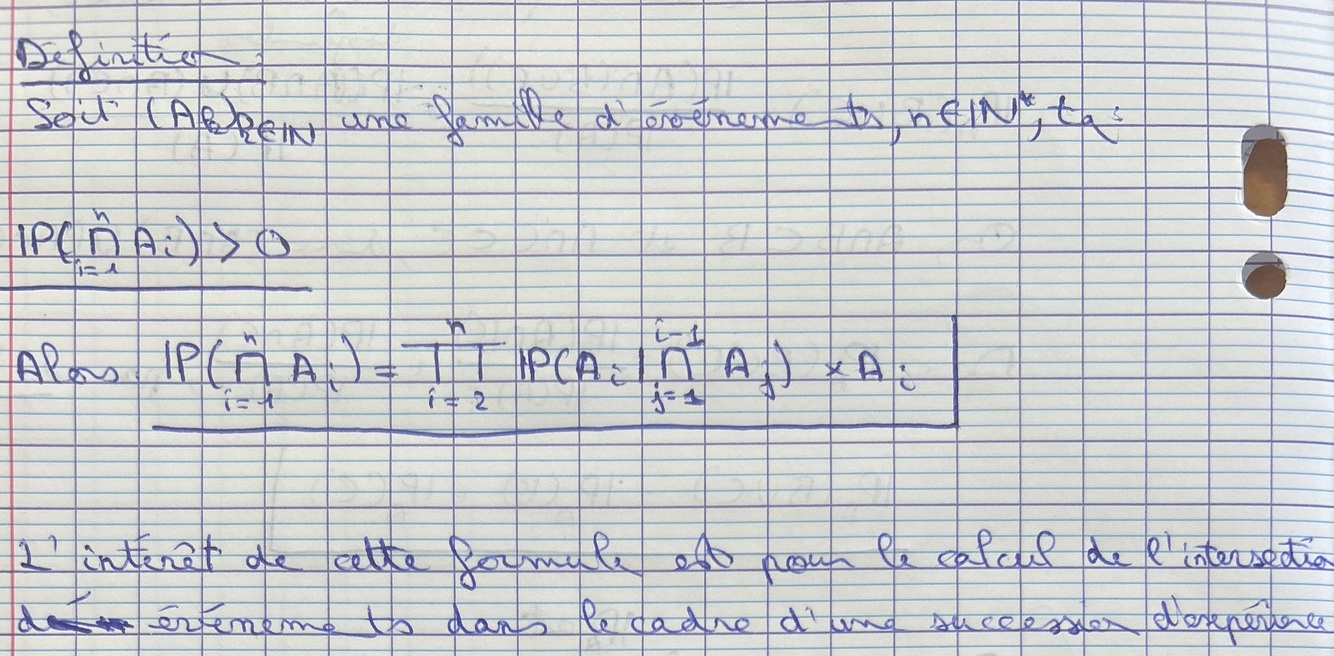 Définition :
Soit (Ak)k∈ℕ une famille d'événements, n∈ℕ*, tq :
ℙ(⋂_{i=1}^{n} Ai) > 0
Alors ℙ(⋂_{i=1}^{n} Ai) = ∏_{i=2}^{n} ℙ(Ai | ⋂_{j=1}^{i-1} Aj) × Ai
L'intérêt de cette formule est pour le calcul de l'intersection
événements dans le cadre d'une succession d'expérience